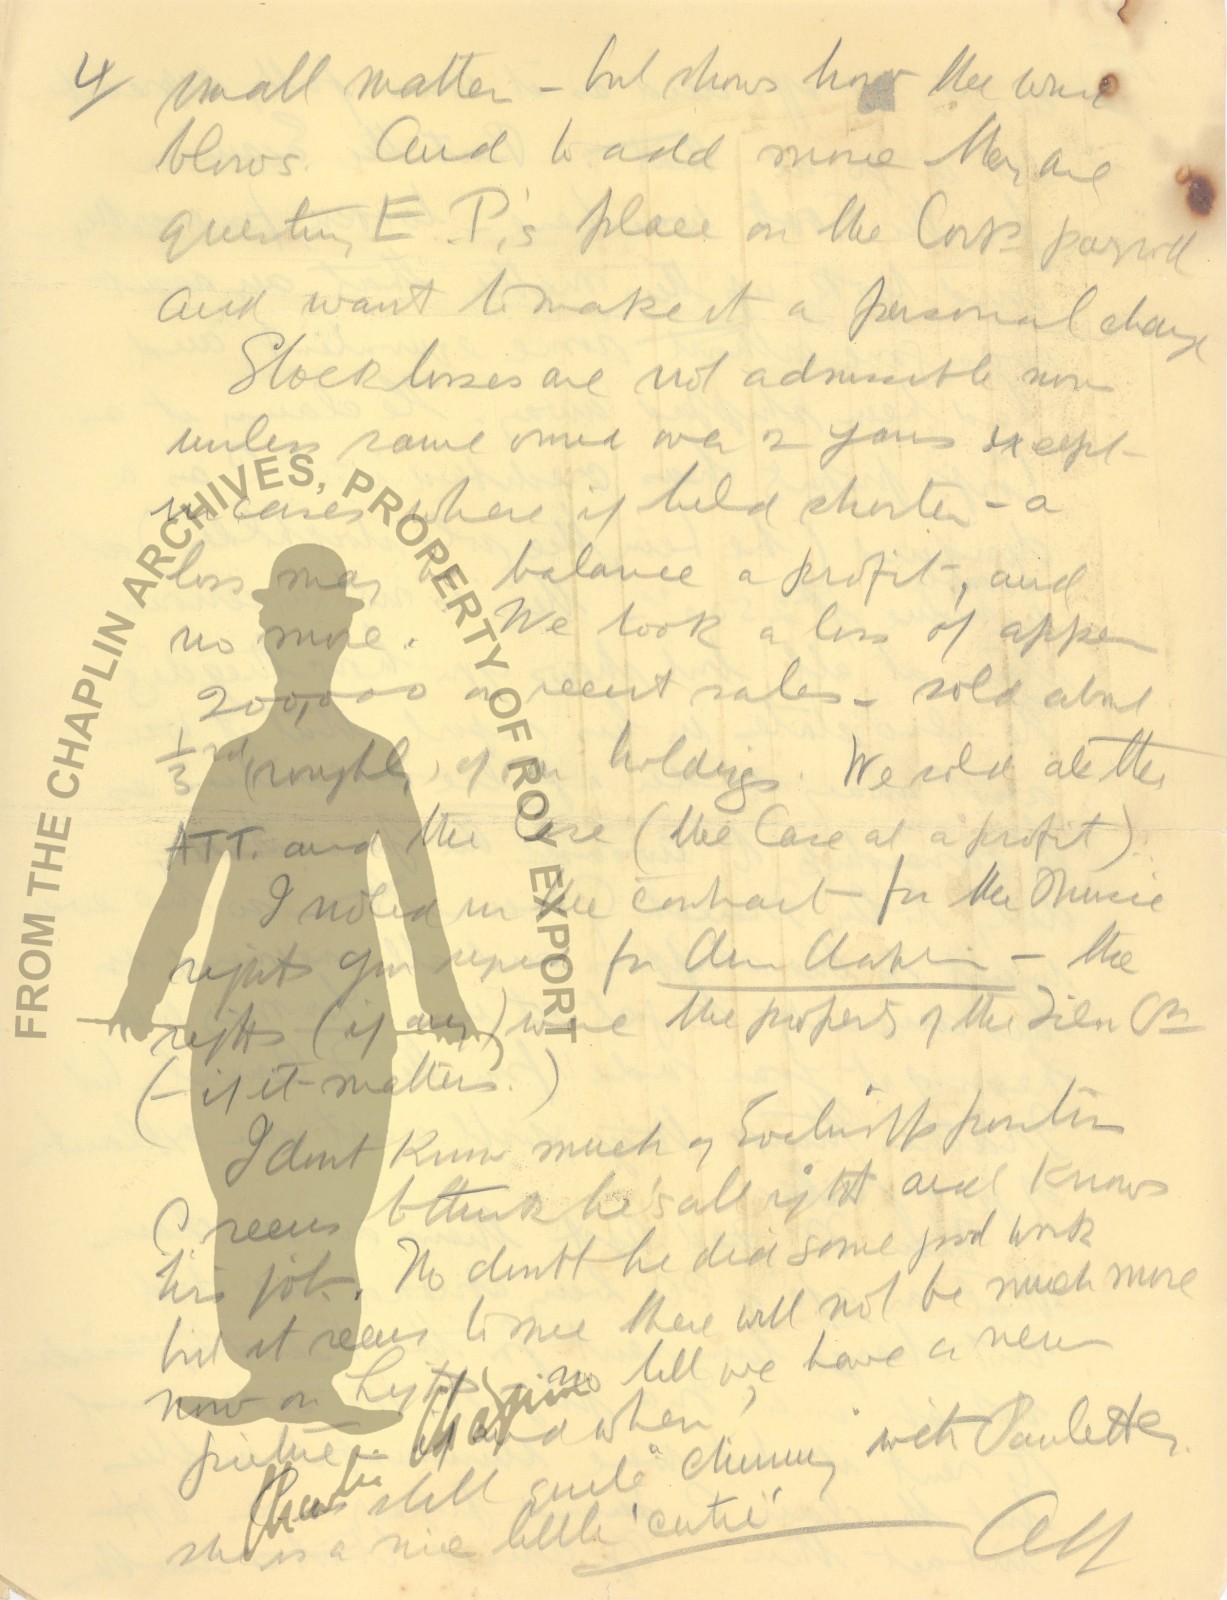 4/ small matter – but shows how the wind
blows. And to add more they are
questing E.P.'s place on the Corp payroll
and want to make it a personal charge
Stock losses are not admissible now
unless same owned over 2 years except
in cases where if held shorter – a
loss may be balance a profit, and
no more. We took a loss of appx
200,000 on recent sales – sold about
1/3rd (roughly) of our holdings. We sold all the
ATT. and the Case (the Case at a profit).
I noted in the contract for the Music
rights you signed for – the
rights (if any) were the property of the Film Co
(– if it matters.)
I dont know much of position
C seems to think he's all right and knows
his job. No doubt he did some good work
but it seems to me there will not be much more
now on Lights till we have a new
picture – if and when,
Chas still quite "chummy" with Paulette,
she is a nice little 'cutie'
Alf
Charlie Chaplin
FROM THE CHAPLIN ARCHIVES, PROPERTY OF ROY EXPORT